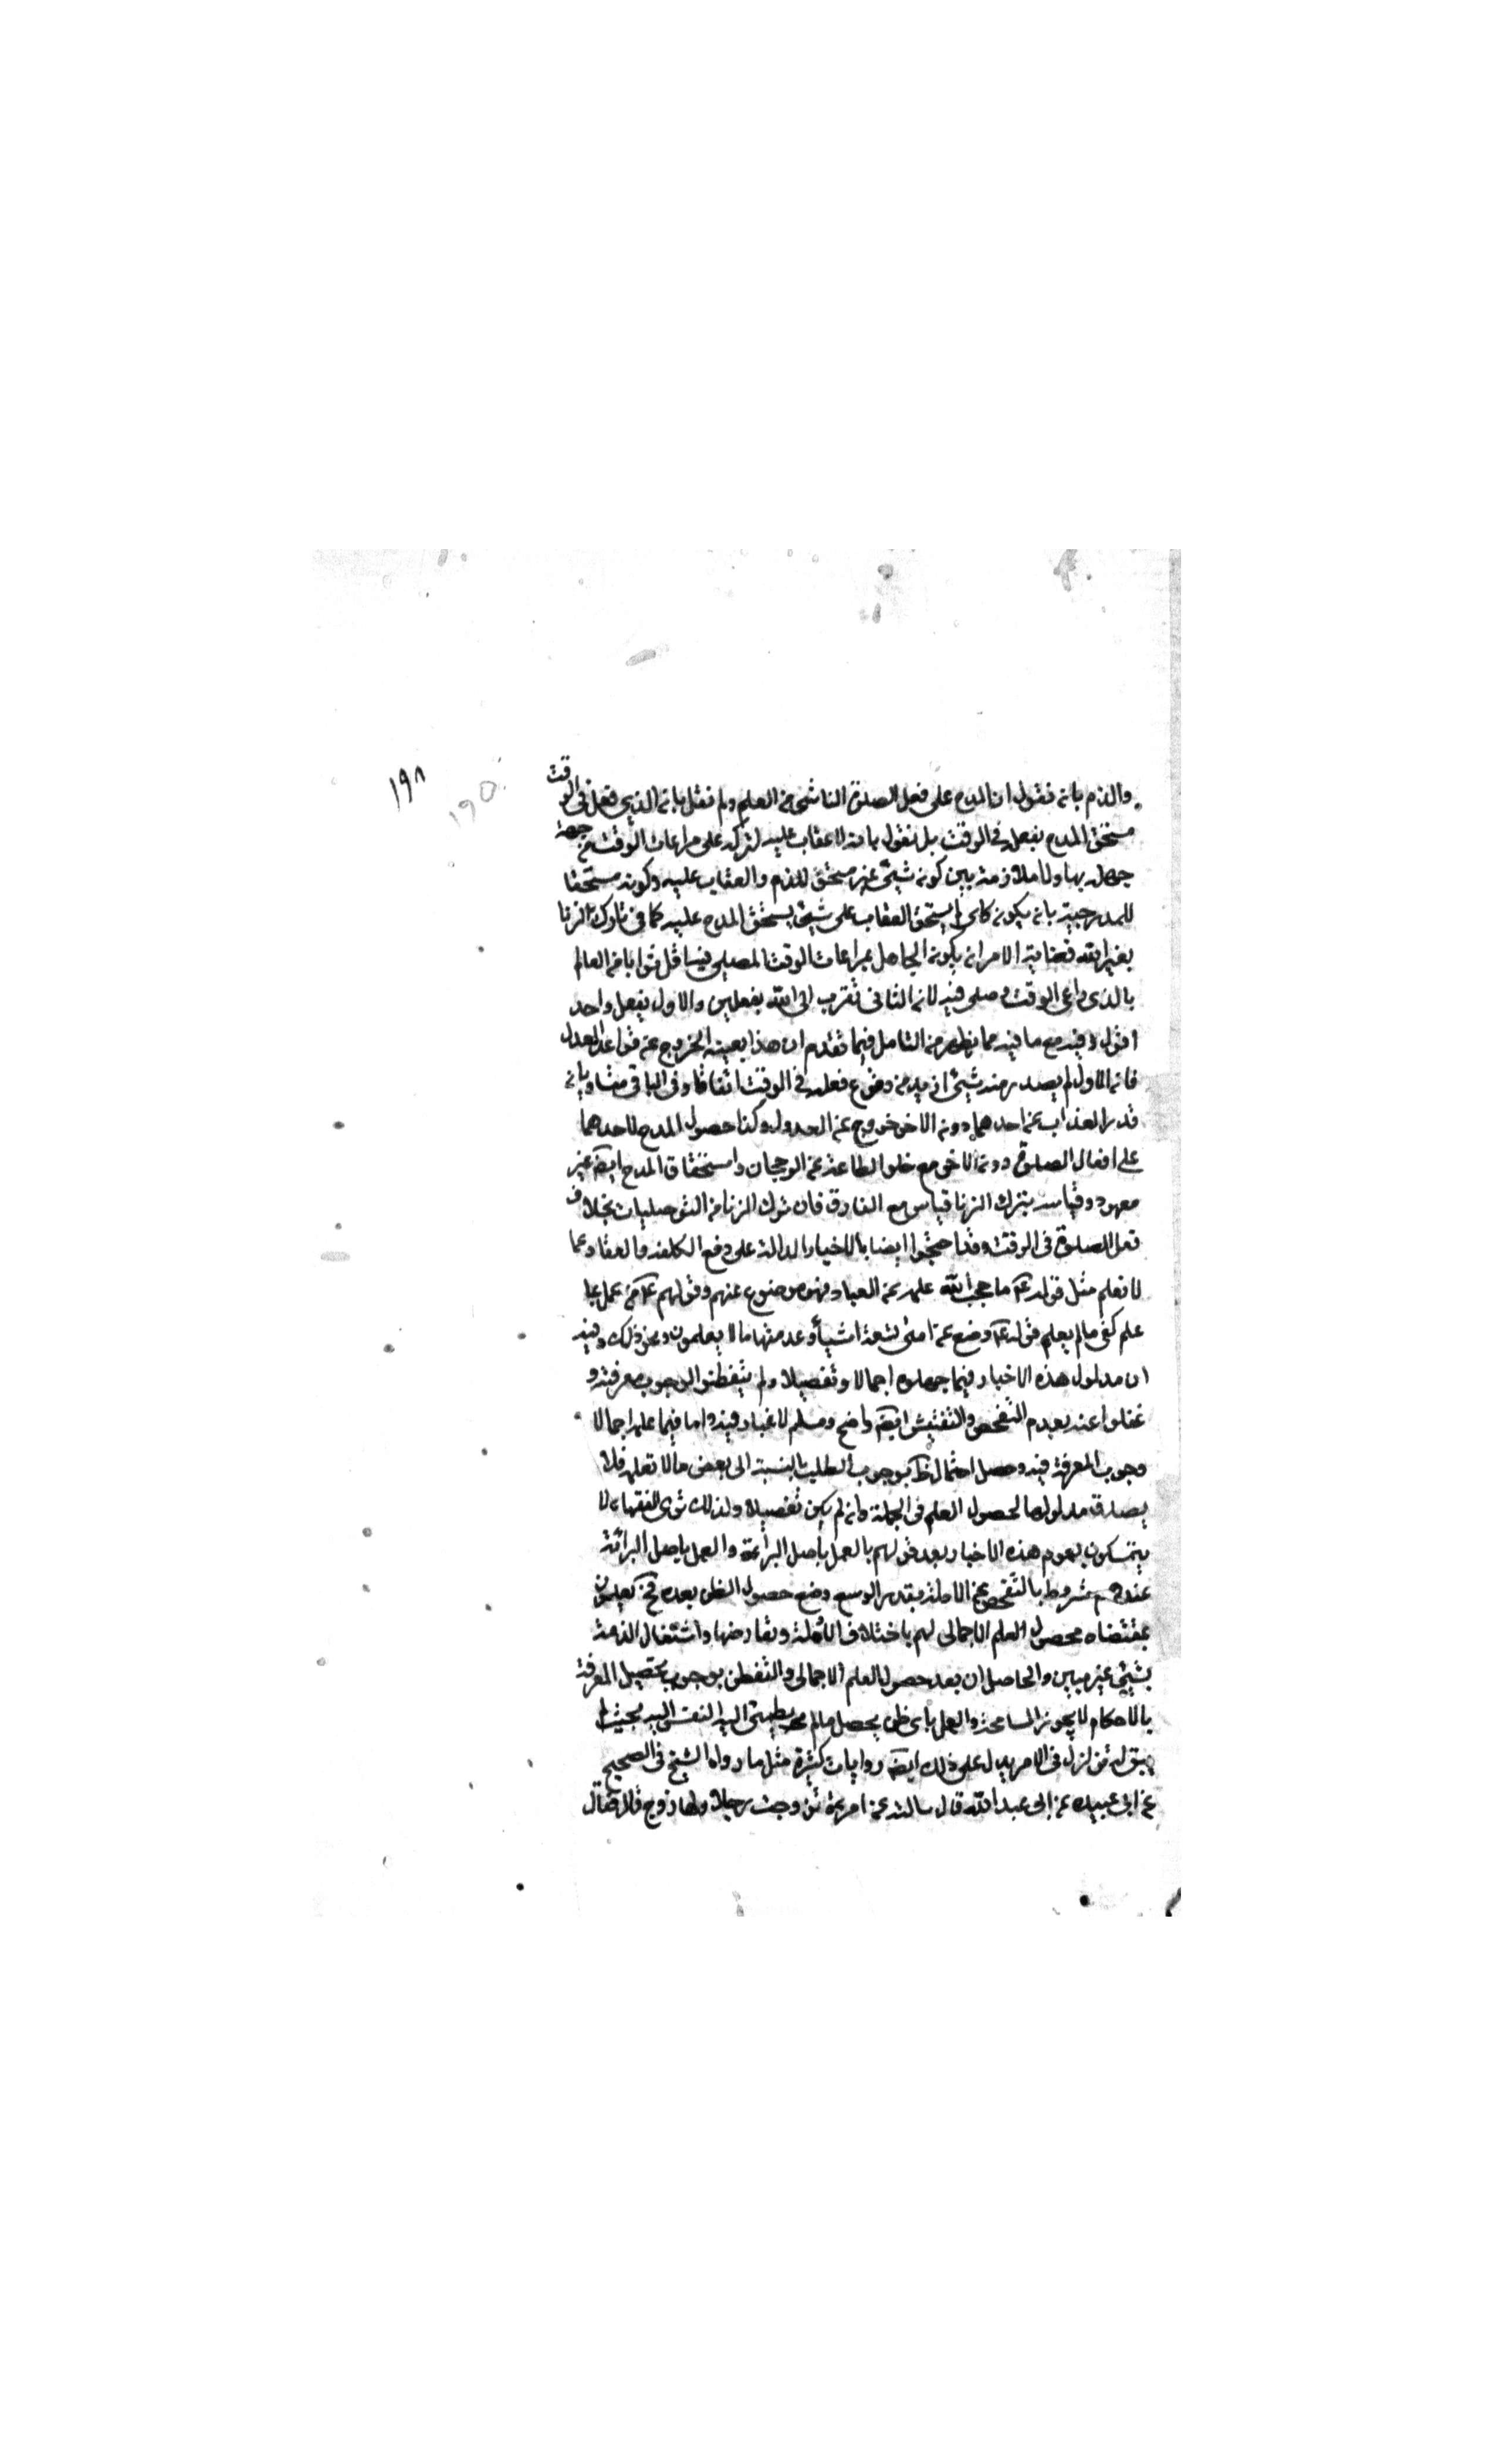 ١٩٨
١٩٥
والذم بان نقول ان المدح على فعل الصلوة الناشى من العلم ولم نقل بان الذي فعل في الوقت
مستحق المدح بفعله في الوقت بل نقول بانه لا عقاب عليه لتركه على مراعات الوقت من جهة
جهله بها ولا ملازمة بين كونه شيئ غير مستحق للذم والعقاب عليه وكونه مستحقا
للمدح بان يكون كل ما لا يستحق العقاب على شيئ يستحق المدح عليه كما في تارك الزنا
بغير الله فغاية الامر ان يكون الجاهل بمراعات الوقت المصلي فيه اقل ثوابا من العالم
بالذى راعى الوقت وصلى فيه لان الثانى تقرب الى الله بفعلين والاول بفعل واحد
اقول وفيه مع ما فيه مما يظهر من التامل فيما تقدم ان هذا بعينه الخروج عن قواعد العدل
فان الاول لم يصدر منه شيئ ازيد من وقوع فعله في الوقت اتفاقا وفى الباقى متساويان
قدر العذاب عن احدهما دون الاخر خروج عن العدول وكذا حصول المدح لاحدهما
على افعال الصلوة دون الاخر مع خلو الطاعة عن الرجحان واستحقاق المدح ايضا غير
معهود وقياسه بترك الزنا قياس مع الفارق فان ترك الزنا من التوصليات بخلاف
فعل الصلوة في الوقت وقد احتجوا ايضا بالاخبار الدالة على رفع الكلفة والعقاد عما
لا نعلم مثل قوله ع ما حجب الله علمه عن العباد فهو موضوع عنهم وقولهم ع من عمل بما
علم كفى ما لم يعلم قوله ع وضع عن امتى تسعة اشياء وعد منها ما لا يعلمون ونحو ذلك وفيه
ان مدلول هذه الاخبار فيما جهلوه اجمالا وتفصيلا ولم يتفطنوا لوجوب معرفته و
غفلوا عنه بعدم التفحص والتفتيش ايضا واضح ومسلم لا غبار فيه واما فيما علم اجمالا
وجوب المعرفة فيه وحصل احتمال بوجوب الطلب بالنسبة الى بعض ما لا نعلمه فلا
يصدق مدلولها لحصول العلم في الجملة وان لم يكن تفصيلا ولذلك ترى الفقهاء لا
يتمسكون بعموم هذه الاخبار بعد قولهم بالعمل باصل البرائة والعمل باصل البرائة
عندهم مشروط بالتفحص عن الادلة بقدر الوسع وضع حصول الظن بعده فح يعملون
بمقتضاه محصول العلم الاجمالى لهم باختلاف الادلة وتعارضها واشتغال الذمة
بشيئ غير مبين والحاصل ان بعد حصول العلم الاجمالى والتفطن بوجوب تحصيل المعرفة
بالاحكام لا يجوز المسامحة والعمل باى ظن يحصل مالم يطمئن اليه النفس اليه بحيث لم
يبق له تزلزل في الامر يدل على ذلك ايضا روايات كثيرة مثل ما رواه الشيخ في الصحيح
عن ابى عبيده عن ابى عبد الله قال سالته عن امرئة تزوجت رجلا ولها زوج قال فقال